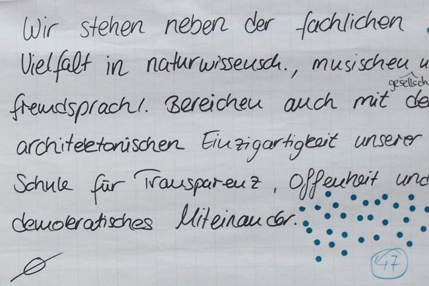 Wir stehen neben der fachlichen
Vielfalt in naturwissensch., musischen u
gesellsch
fremdsprachl. Bereichen auch mit de
architektonischen Einzigartigkeit unserer
Schule für Transparenz, Offenheit und
demokratisches Miteinander.
47